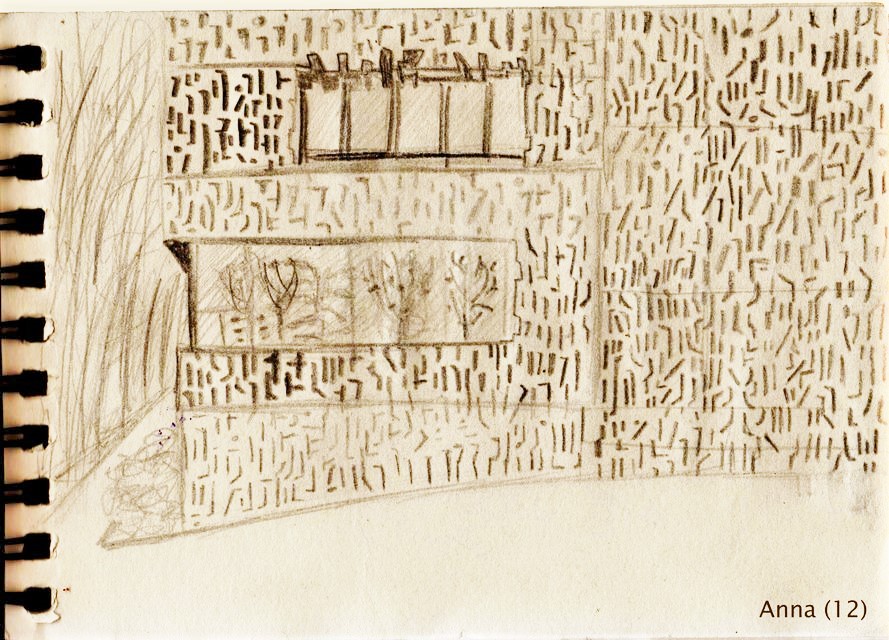 Anna (12)